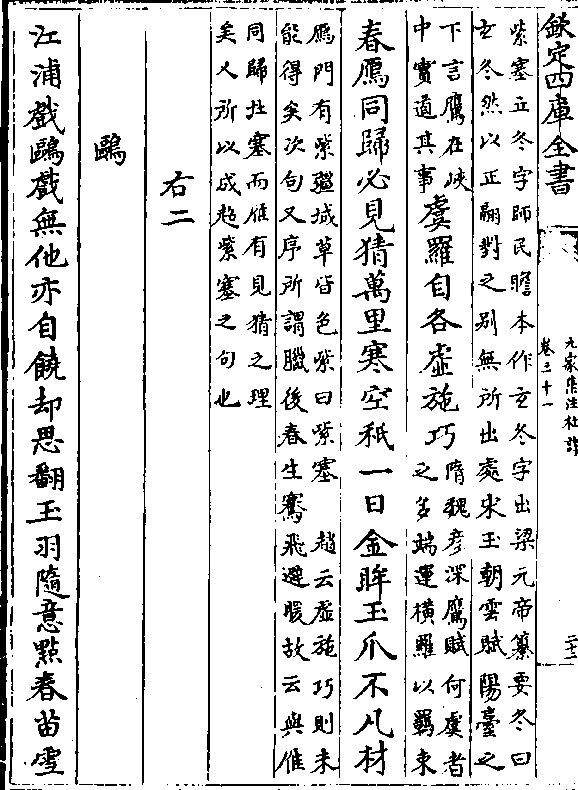 欽定四庫全書
九家集注杜詩
卷三十一
紫塞立冬字師民瞻本作玄冬字出梁元帝纂要冬曰
玄冬然以正翮對之别無所出處宋玉朝雲賦陽臺之
下言鷹在峽
中實道其事
虞羅自各虛施巧
隋魏彦深鷹賦何虞者
之多端運橫羅以羈束
春鴈同歸必見猜萬里寒空秪一日金眸玉爪不凡材
鴈門有紫疆城草皆色紫曰紫塞 趙云虛施巧則未
能得矣次句又序所謂臘後春生騫飛避暖故云與雁
同歸北塞而雁有見猜之理
矣又所以成超紫塞之句也
右二
鷗
江浦戲鷗戲無他亦自饒却思翻玉羽隨意點春苗雪